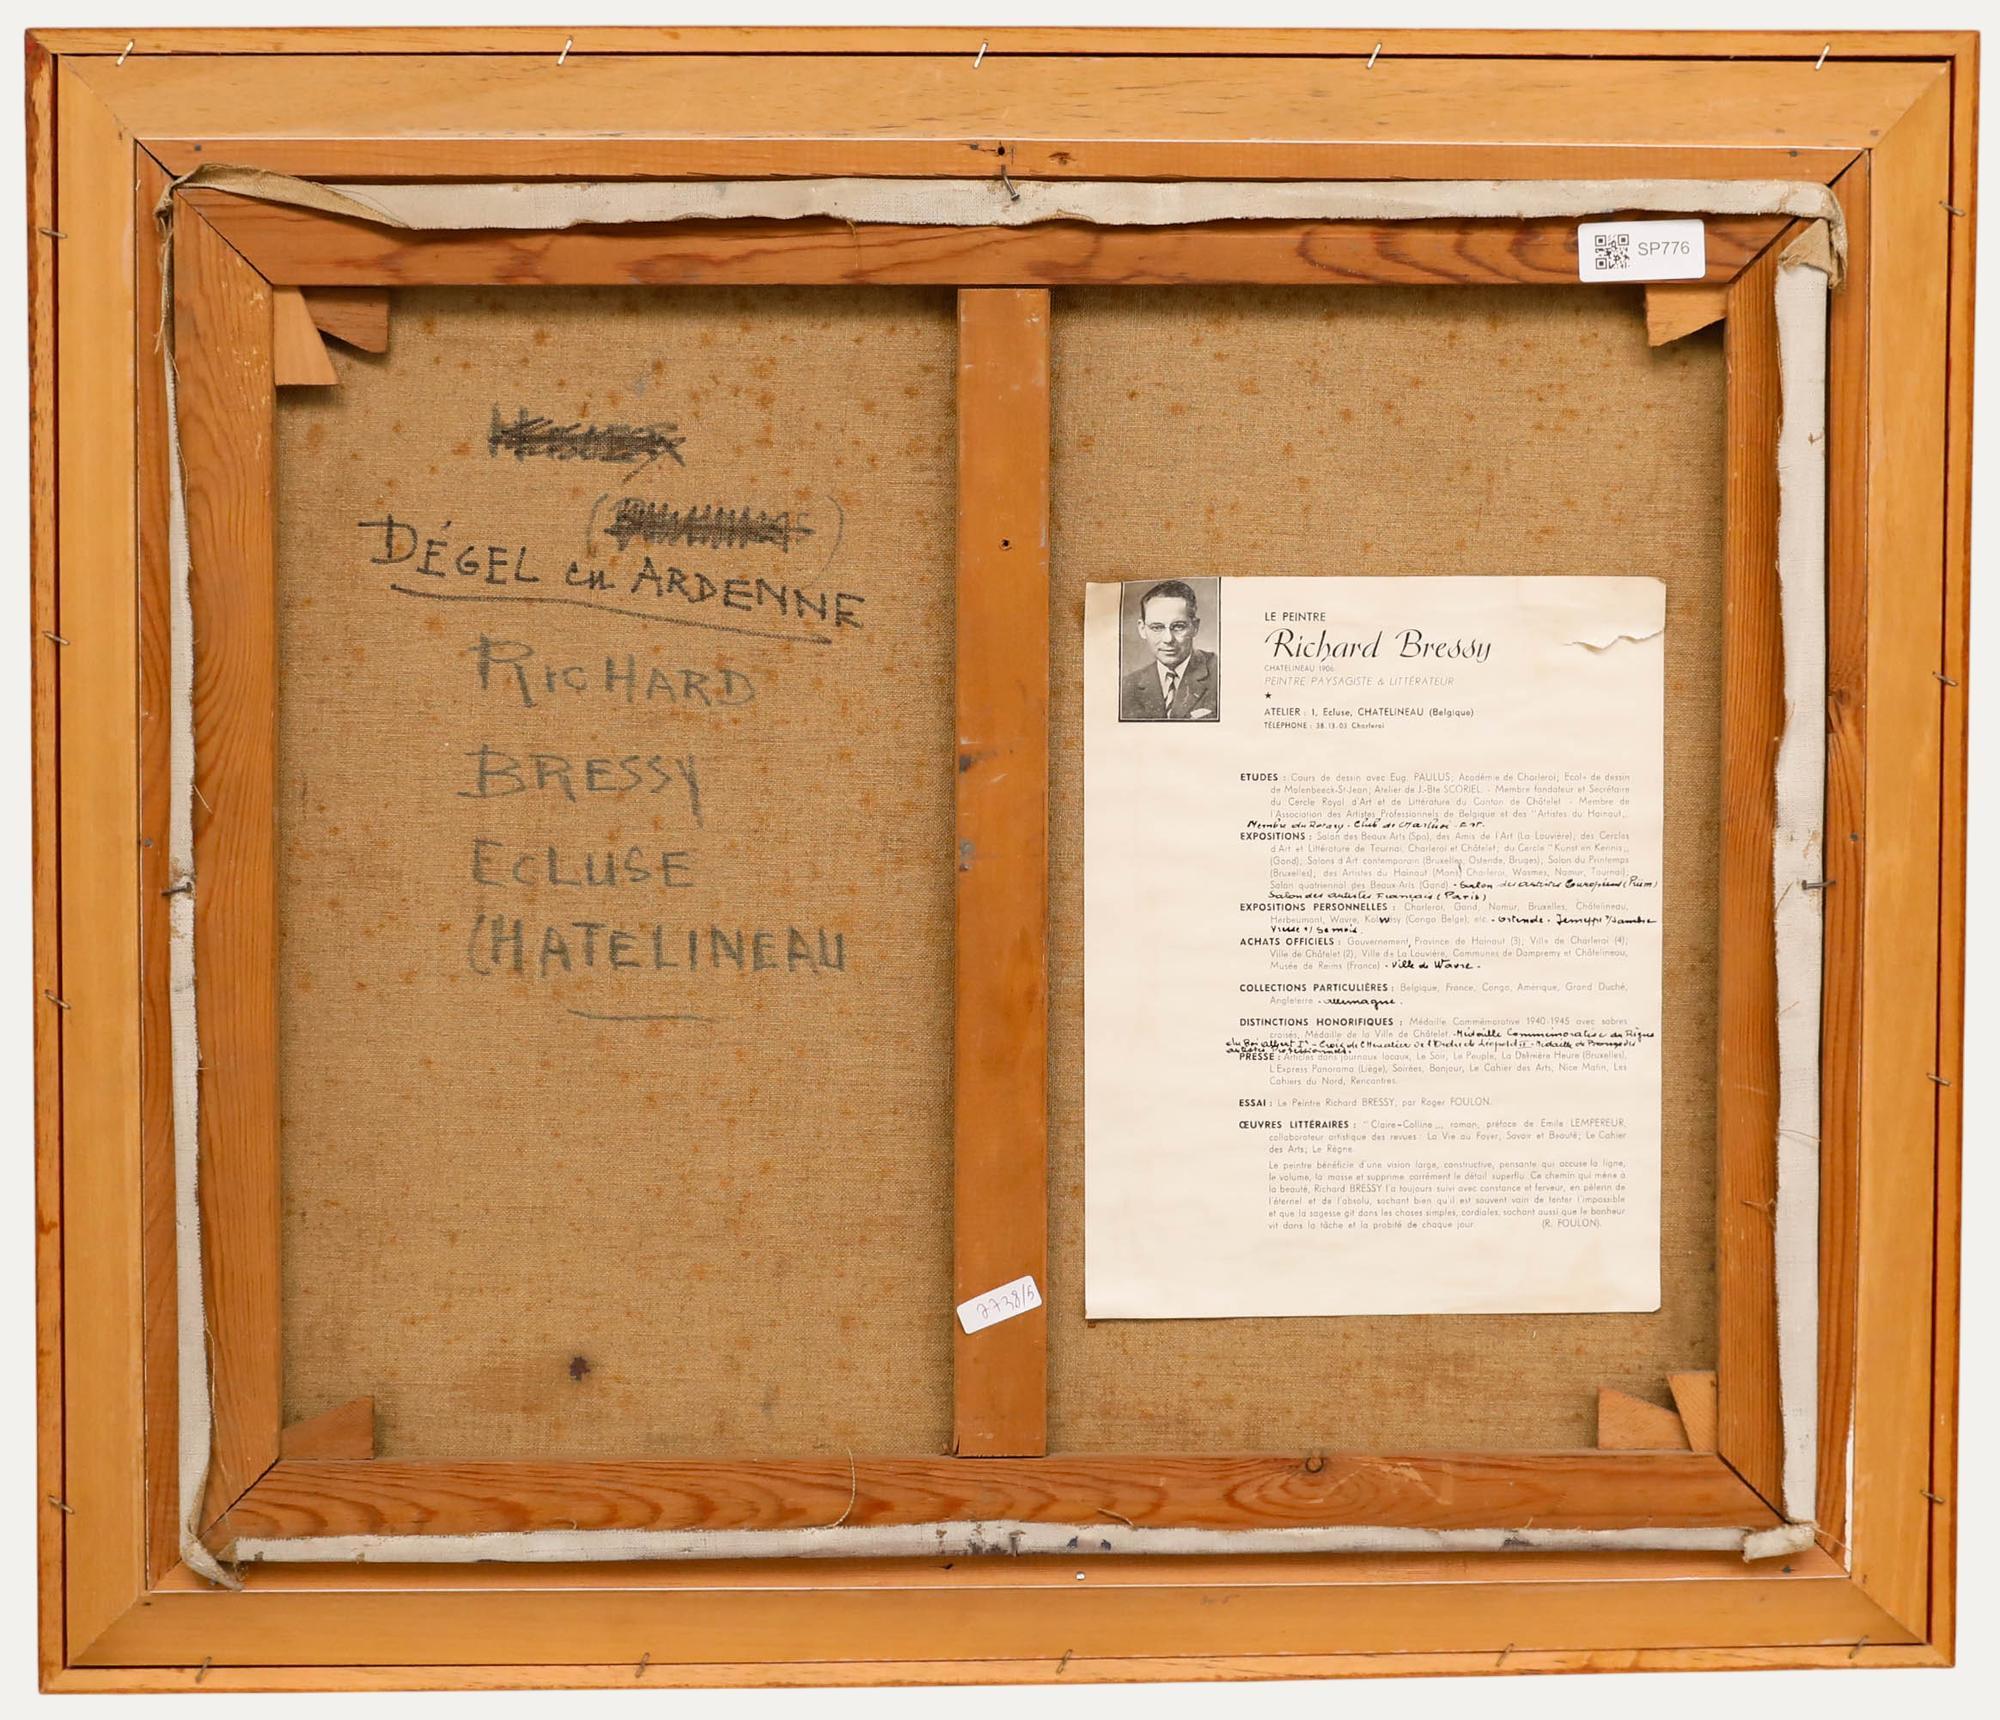 SP776
DÉGEL en ARDENNE
RICHARD
BRESSY
ECLUSE
CHATELINEAU
7738/5
LE PEINTRE
Richard Bressy
CHATELINEAU 1906
PEINTRE PAYSAGISTE & LITTÉRATEUR
★
ATELIER : 1, Ecluse, CHATELINEAU (Belgique)
TÉLÉPHONE : 38.13.03 Charleroi
ETUDES : Cours de dessin avec Eug. PAULUS; Académie de Charleroi; Ecole de dessin
de Molenbeeck-St-Jean; Atelier de J.-Bte SCORIEL. - Membre fondateur et Secrétaire
du Cercle Royal d'Art et de Littérature du Canton de Châtelet - Membre de
l'Association des Artistes Professionnels de Belgique et des "Artistes du Hainaut„
Membre du Rotary-Club de Charleroi-
EXPOSITIONS : Salon des Beaux Arts (Spa), des Amis de l'Art (La Louvière), des Cercles
d'Art et Littérature de Tournai, Charleroi et Châtelet; du Cercle "Kunst en Kennis„
(Gand); Salons d'Art contemporain (Bruxelles, Ostende, Bruges); Salon du Printemps
(Bruxelles); des Artistes du Hainaut (Mons, Charleroi, Wasmes, Namur, Tournai);
Salon quatriennal des Beaux-Arts (Gand) - Salon des artistes Européens (Prüm)
Salon des artistes Français (Paris)
EXPOSITIONS PERSONNELLES : Charleroi, Gand, Namur, Bruxelles, Châtelineau,
Herbeumont, Wavre, Kolwesy (Congo Belge), etc. - Ostende - Jemeppe s/Sambre
Vresse s/ Semois.
ACHATS OFFICIELS : Gouvernement, Province de Hainaut (3); Ville de Charleroi (4);
Ville de Châtelet (2); Ville de La Louvière, Communes de Dampremy et Châtelineau,
Musée de Reims (France) - Ville de Wavre -
COLLECTIONS PARTICULIÈRES : Belgique, France, Congo, Amérique, Grand Duché,
Angleterre - Allemagne.
DISTINCTIONS HONORIFIQUES : Médaille Commémorative 1940-1945 avec sabres
croisés, Médaille de la Ville de Châtelet - Médaille Commémorative du Règne
du Roi Albert Ier - Croix de Chevalier de l'Ordre de Léopold II - Médaille de Bronze des
artistes Professionnels.
PRESSE : Articles dans journaux locaux, Le Soir, Le Peuple, La Dernière Heure (Bruxelles),
L'Express Panorama (Liège), Soirées, Bonjour, Le Cahier des Arts, Nice Matin, Les
Cahiers du Nord, Rencontres.
ESSAI : Le Peintre Richard BRESSY, par Roger FOULON.
ŒUVRES LITTÉRAIRES : "Claire-Colline„, roman, préface de Emile LEMPEREUR,
collaborateur artistique des revues : La Vie au Foyer, Savoir et Beauté; Le Cahier
des Arts; Le Règne.
Le peintre bénéficie d'une vision large, constructive, pensante qui accuse la ligne,
le volume, la masse et supprime carrément le détail superflu. Ce chemin qui mène à
la beauté, Richard BRESSY l'a toujours suivi avec constance et ferveur, en pèlerin de
l'éternel et de l'absolu, sachant bien qu'il est souvent vain de tenter l'impossible
et que la sagesse gît dans les choses simples, cordiales; sachant aussi que le bonheur
vit dans la tâche et la probité de chaque jour. (R. FOULON).